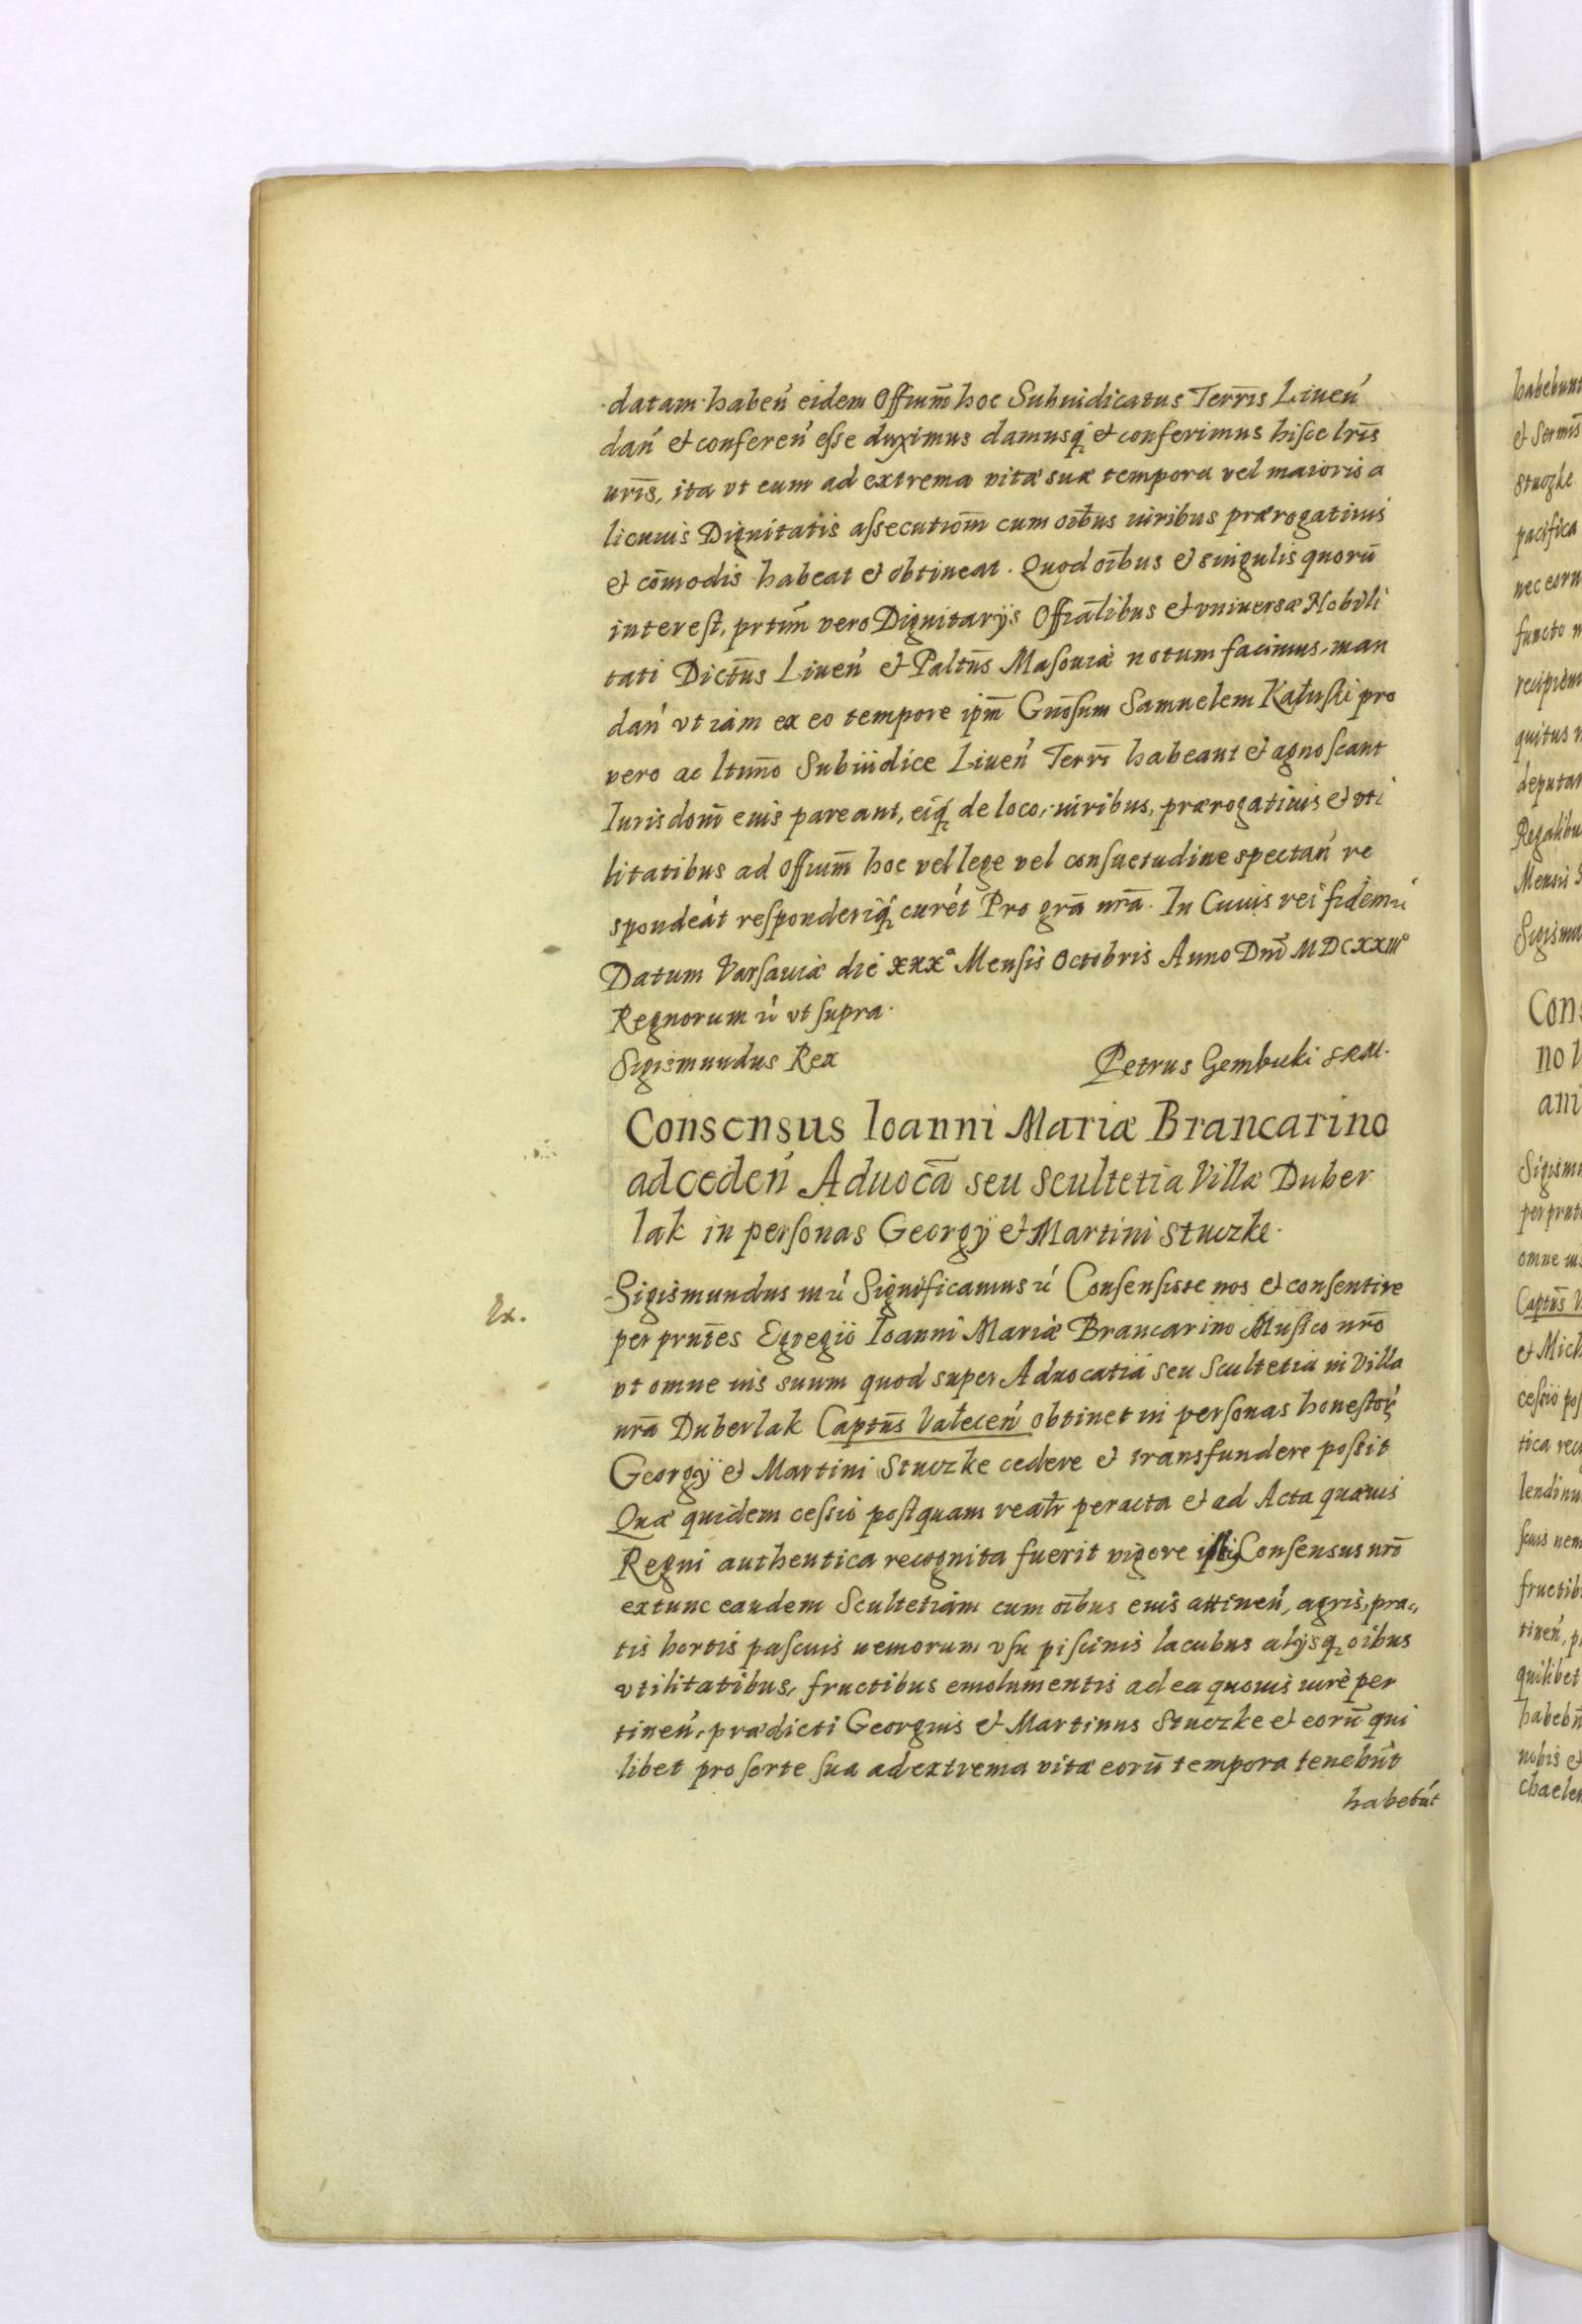 datam haben̄ eidem Offium̄ hoc Subiudicatus Terrīs Liuen̄
dan̄ et conferen̄ eſse duximus damusq́ et conferimus hiſce lrīs
nrīs, ita vt eum ad extrema vitæ suæ tempora vel maioris a
licuius Dignitatis aſsecutiom̄ cum oībus iuribus prærogatiuis
et cōmodis habeat et obtineat. Quod oībus et singulis quorū
intereſt, prtim̄ vero Dignitarijs Offiālibus et vniuersæ Nobili
tati Dictūs Liuen̄ et Paltūs Maſouiæ notum facimus, man
dan̄ vt iam ex eo tempore ipm̄ Gnōſum Samuelem Kałuſki pro
vero ac ltimō Subiudice Liuen̄ Terrī habeant et agnoſcant
Iurisdom̄ eius pareant, eiq́ de loco, iuribus, prærogatiuis et vti
litatibus ad offium̄ hoc vel lege vel conſuetudine spectan̄ re
spondeāt reſponderiq́ curēt Pro grā nrā. In Cuius rei fidem ń
Datum Varſauiæ die xxx° Menſis Octobris Anno Dnī MDCXXIII°
Regnorum ń vt ſupra.
Sigismundus Rex Petrus Gembicki SRM.
Consensus Ioanni Mariæ Brancarino
ad ceden̄ Aduocā seu scultetia Villæ Duber
lak in perſonas Georgÿ et Martini Stuczke.
Ex.
Sigismundus mń Significamus ń Conſenſiſse nos et conſentire
per prntēs Egregio Ioanni Mariæ Brancarino Muſico nrō
vt omne ius suum quod super Aduocatia seu Scultetia in Villa
nrā Duberlak Captūs Vałecen̄ obtinet in perſonas honeſtor̄
Georgÿ et Martini Stuczke cedere et transfundere poſsit
Quæ quidem ceſsio poſtquam realr̄ peracta et ad Acta quæuis
Regni authentica recognita fuerit vigore Conſensus nrī
extunc eandem Scultetiam cum oībus eius attinen̄, agris, pra-
tis hortis paſcuis nemorum vſu piſcinis lacubus alÿsq́ oībus
vtilitatibus, fructibus emolumentis ad ea quouis iure per
tinen̄, prædicti Georgius et Martinus Stuczke et eorū qui
libet pro ſorte ſua ad extrema vitæ eorū tempora tenebūt
habebūt